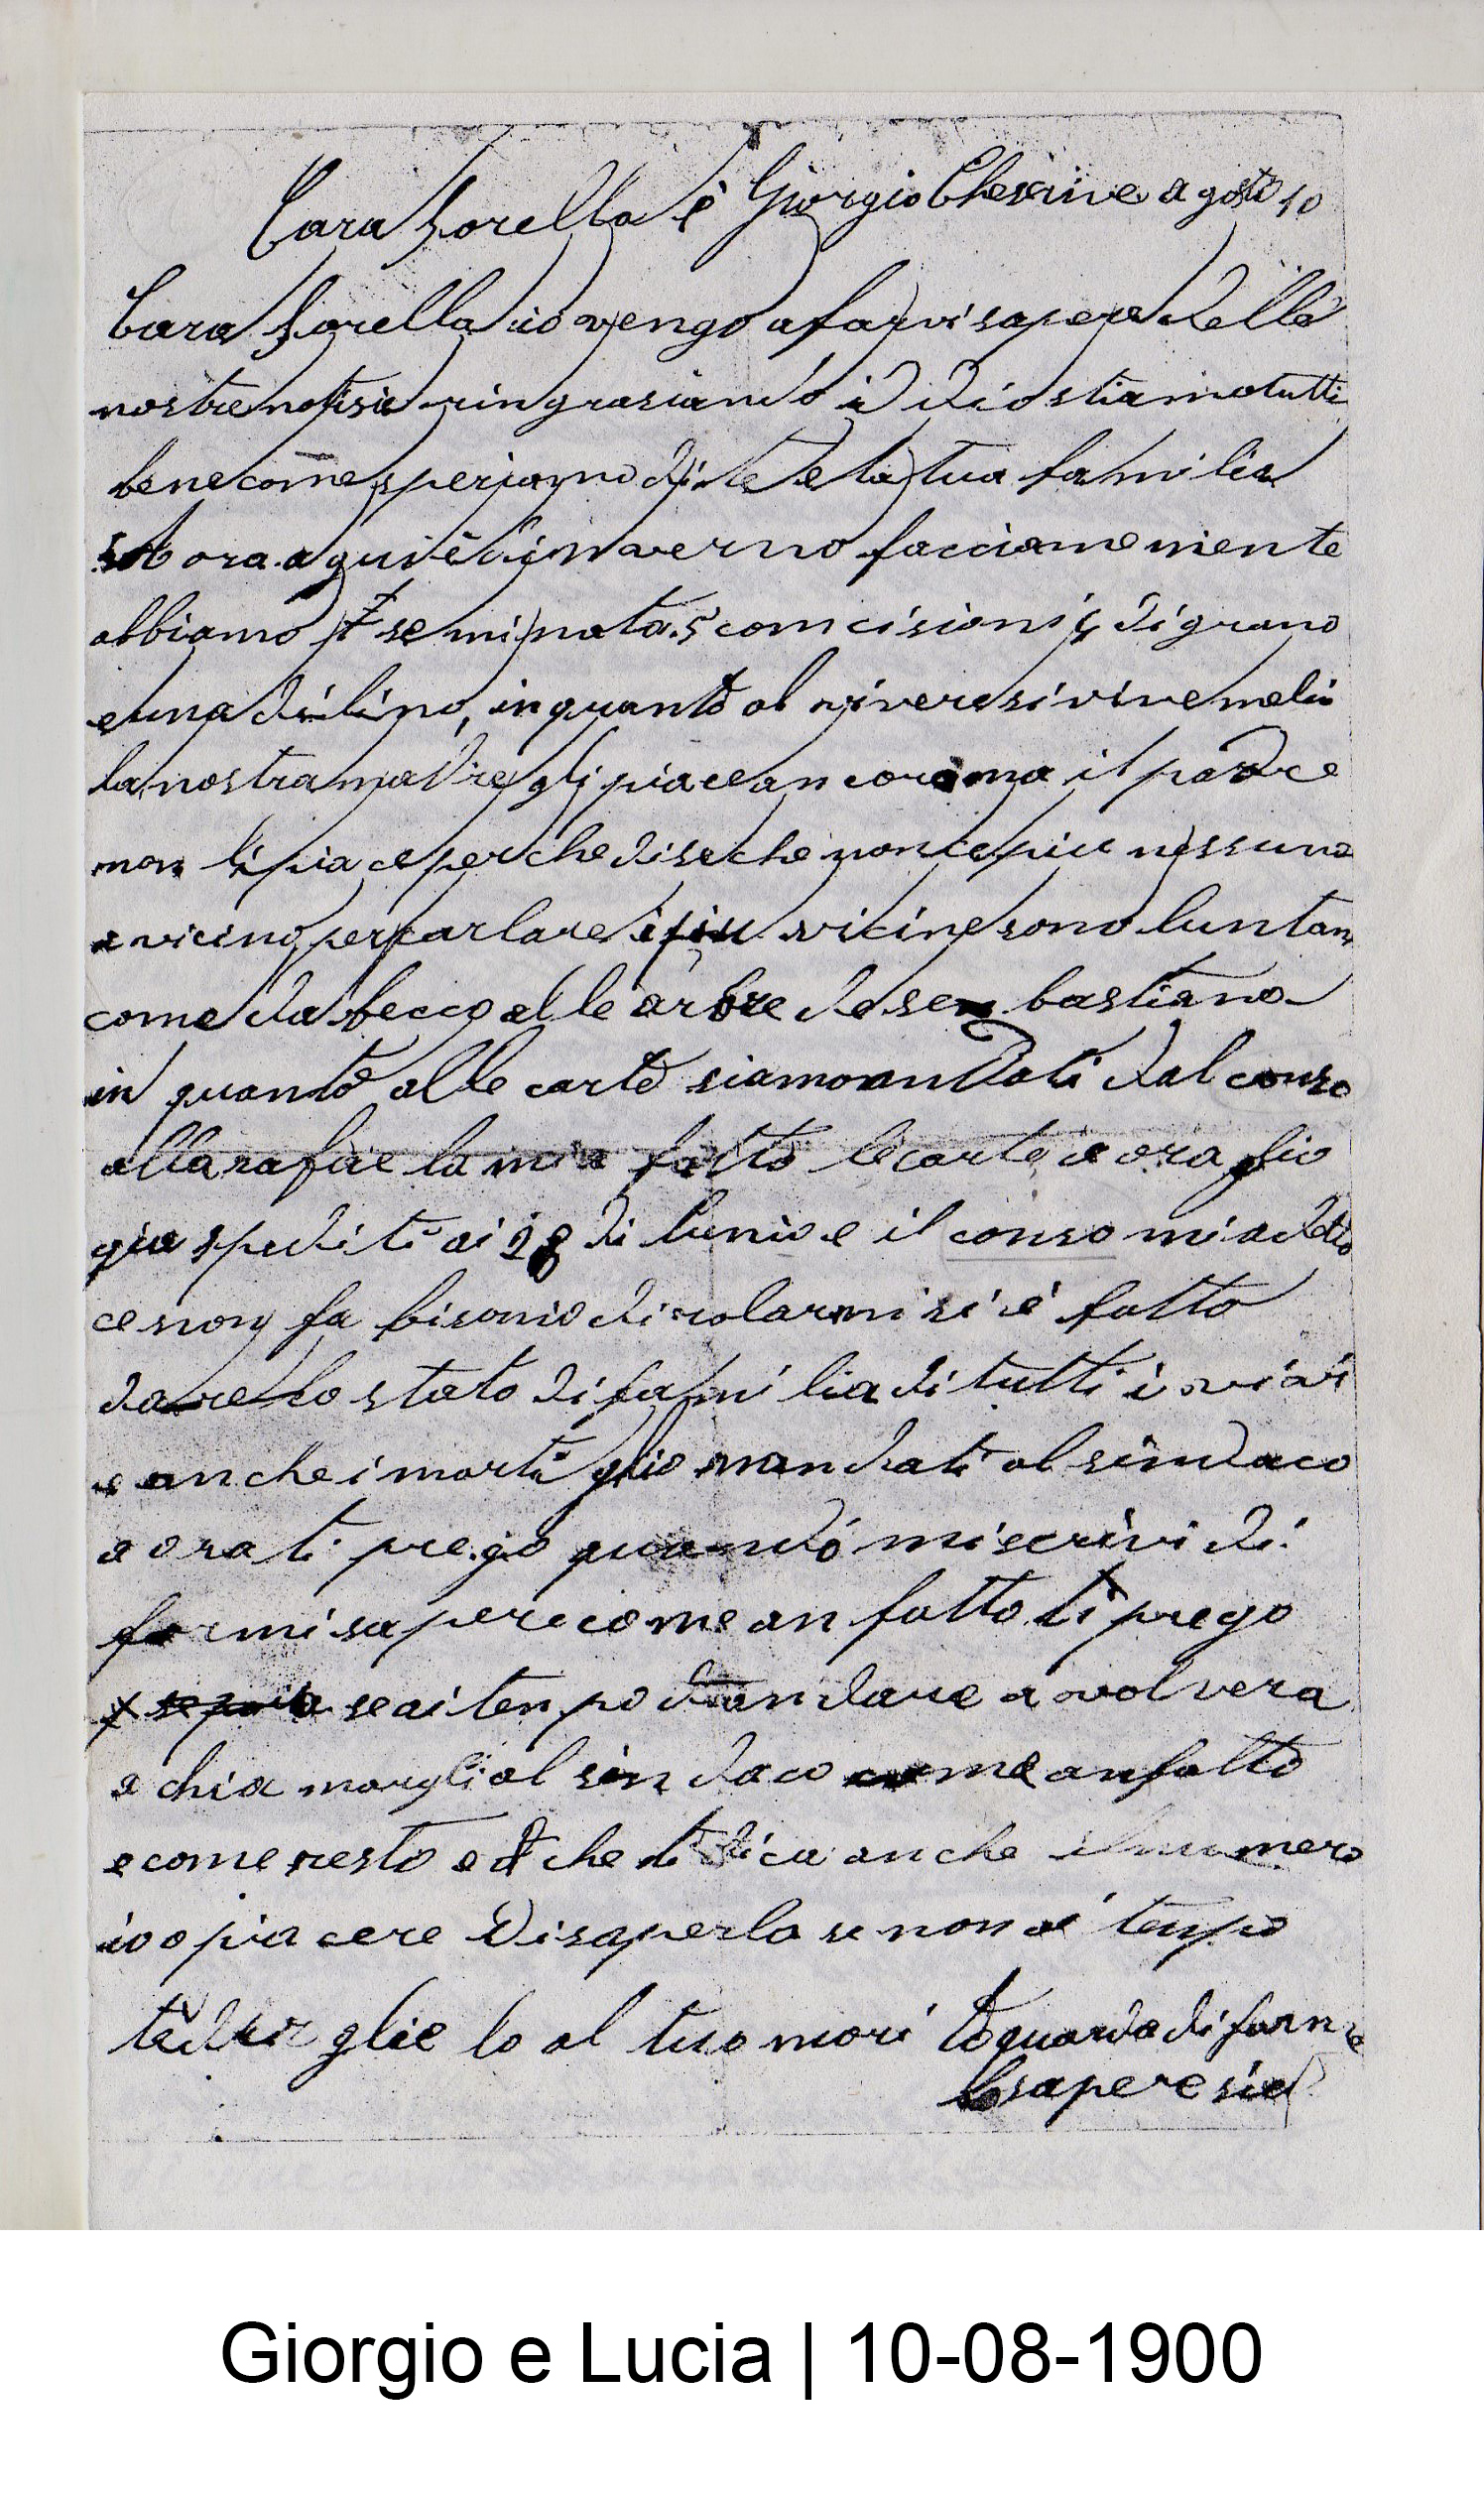 Cara Sorella è Giorgio agosto 10
Cara Sorella io vengo a farvi sapere delle
nostre notisie ringrasiando i Dio stiamo tutti
bene come speriamo di te e la tua familia
ora a qui è di inverno facciamo niente
abbiamo seminata 5 concisioni 4 di grano
e una di lino, in quanto al vivere si vive melio
la nostra madre gli piace ancora ma il padre
non li piace perche dise che non ce piu nessuno
a vicino per parlare i piu vicine sono luntan
come da becco alle arbre de sen bastiano
in quanto alle carte siamo andati dal conso
alla rafaela mi a fatto le carte e ora gl io
gia spediti ai 28 di lunio e il conso mi a detto
ce non fa bisonio di solarmi si è fatto
dare lo stato di familia di tutti i vivi
e anche i morti glio mandati al sindaco
e ora ti prego quando mi scrivi di
farmi sapere come an fatto ti prego
se ai tenpo di andare a volvera
a chiamargli al sindaco come an fatto
e come resto e che ti dica anche il numero
io o piacere di saperlo se non ai tenpo
te dirglielo al tuo mari guarda di farm
sapere sie
Giorgio e Lucia | 10-08-1900